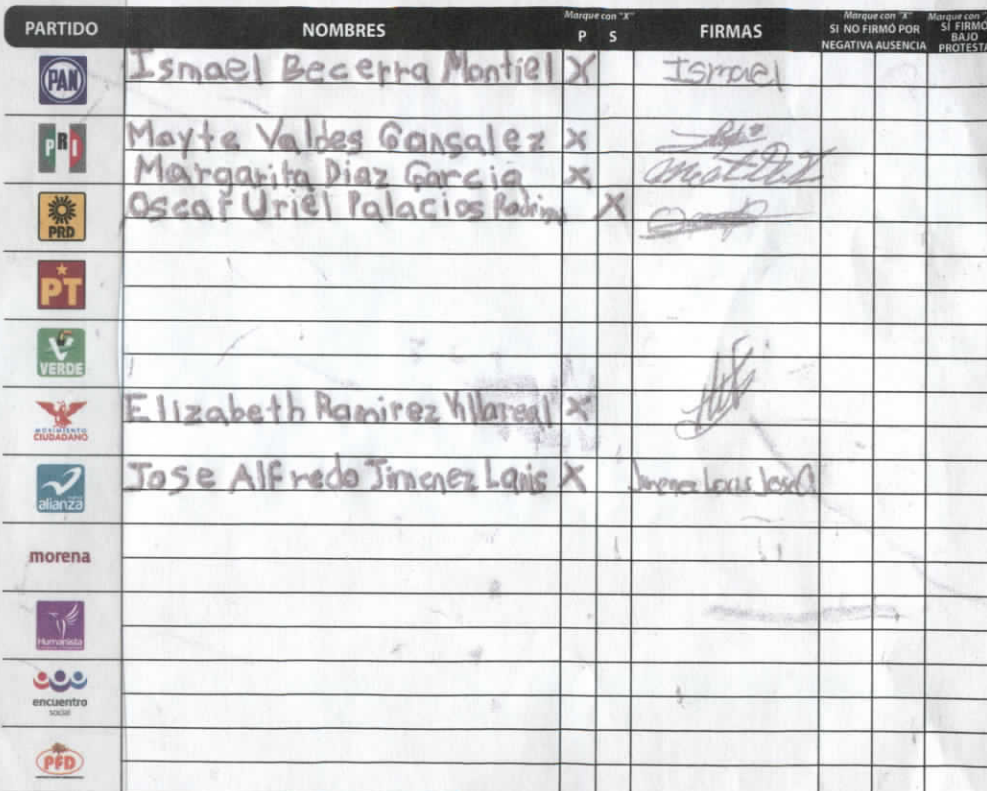 PARTIDO NOMBRES Marque con "X" P S FIRMAS Marque con "X" SI NO FIRMÓ POR NEGATIVA AUSENCIA Marque con "X" SI FIRMÓ BAJO PROTESTA
PAN Ismael Becerra Montiel X Ismael
PRI Mayte Valdes Gansalez X
Margarita Diaz Garcia X
PRD Oscar Uriel Palacios X
PT
VERDE
MOVIMIENTO CIUDADANO Elizabeth Ramirez Villareal X
alianza Jose Alfredo Jimenez Lauis X
morena
Humanista
encuentro social
PFD